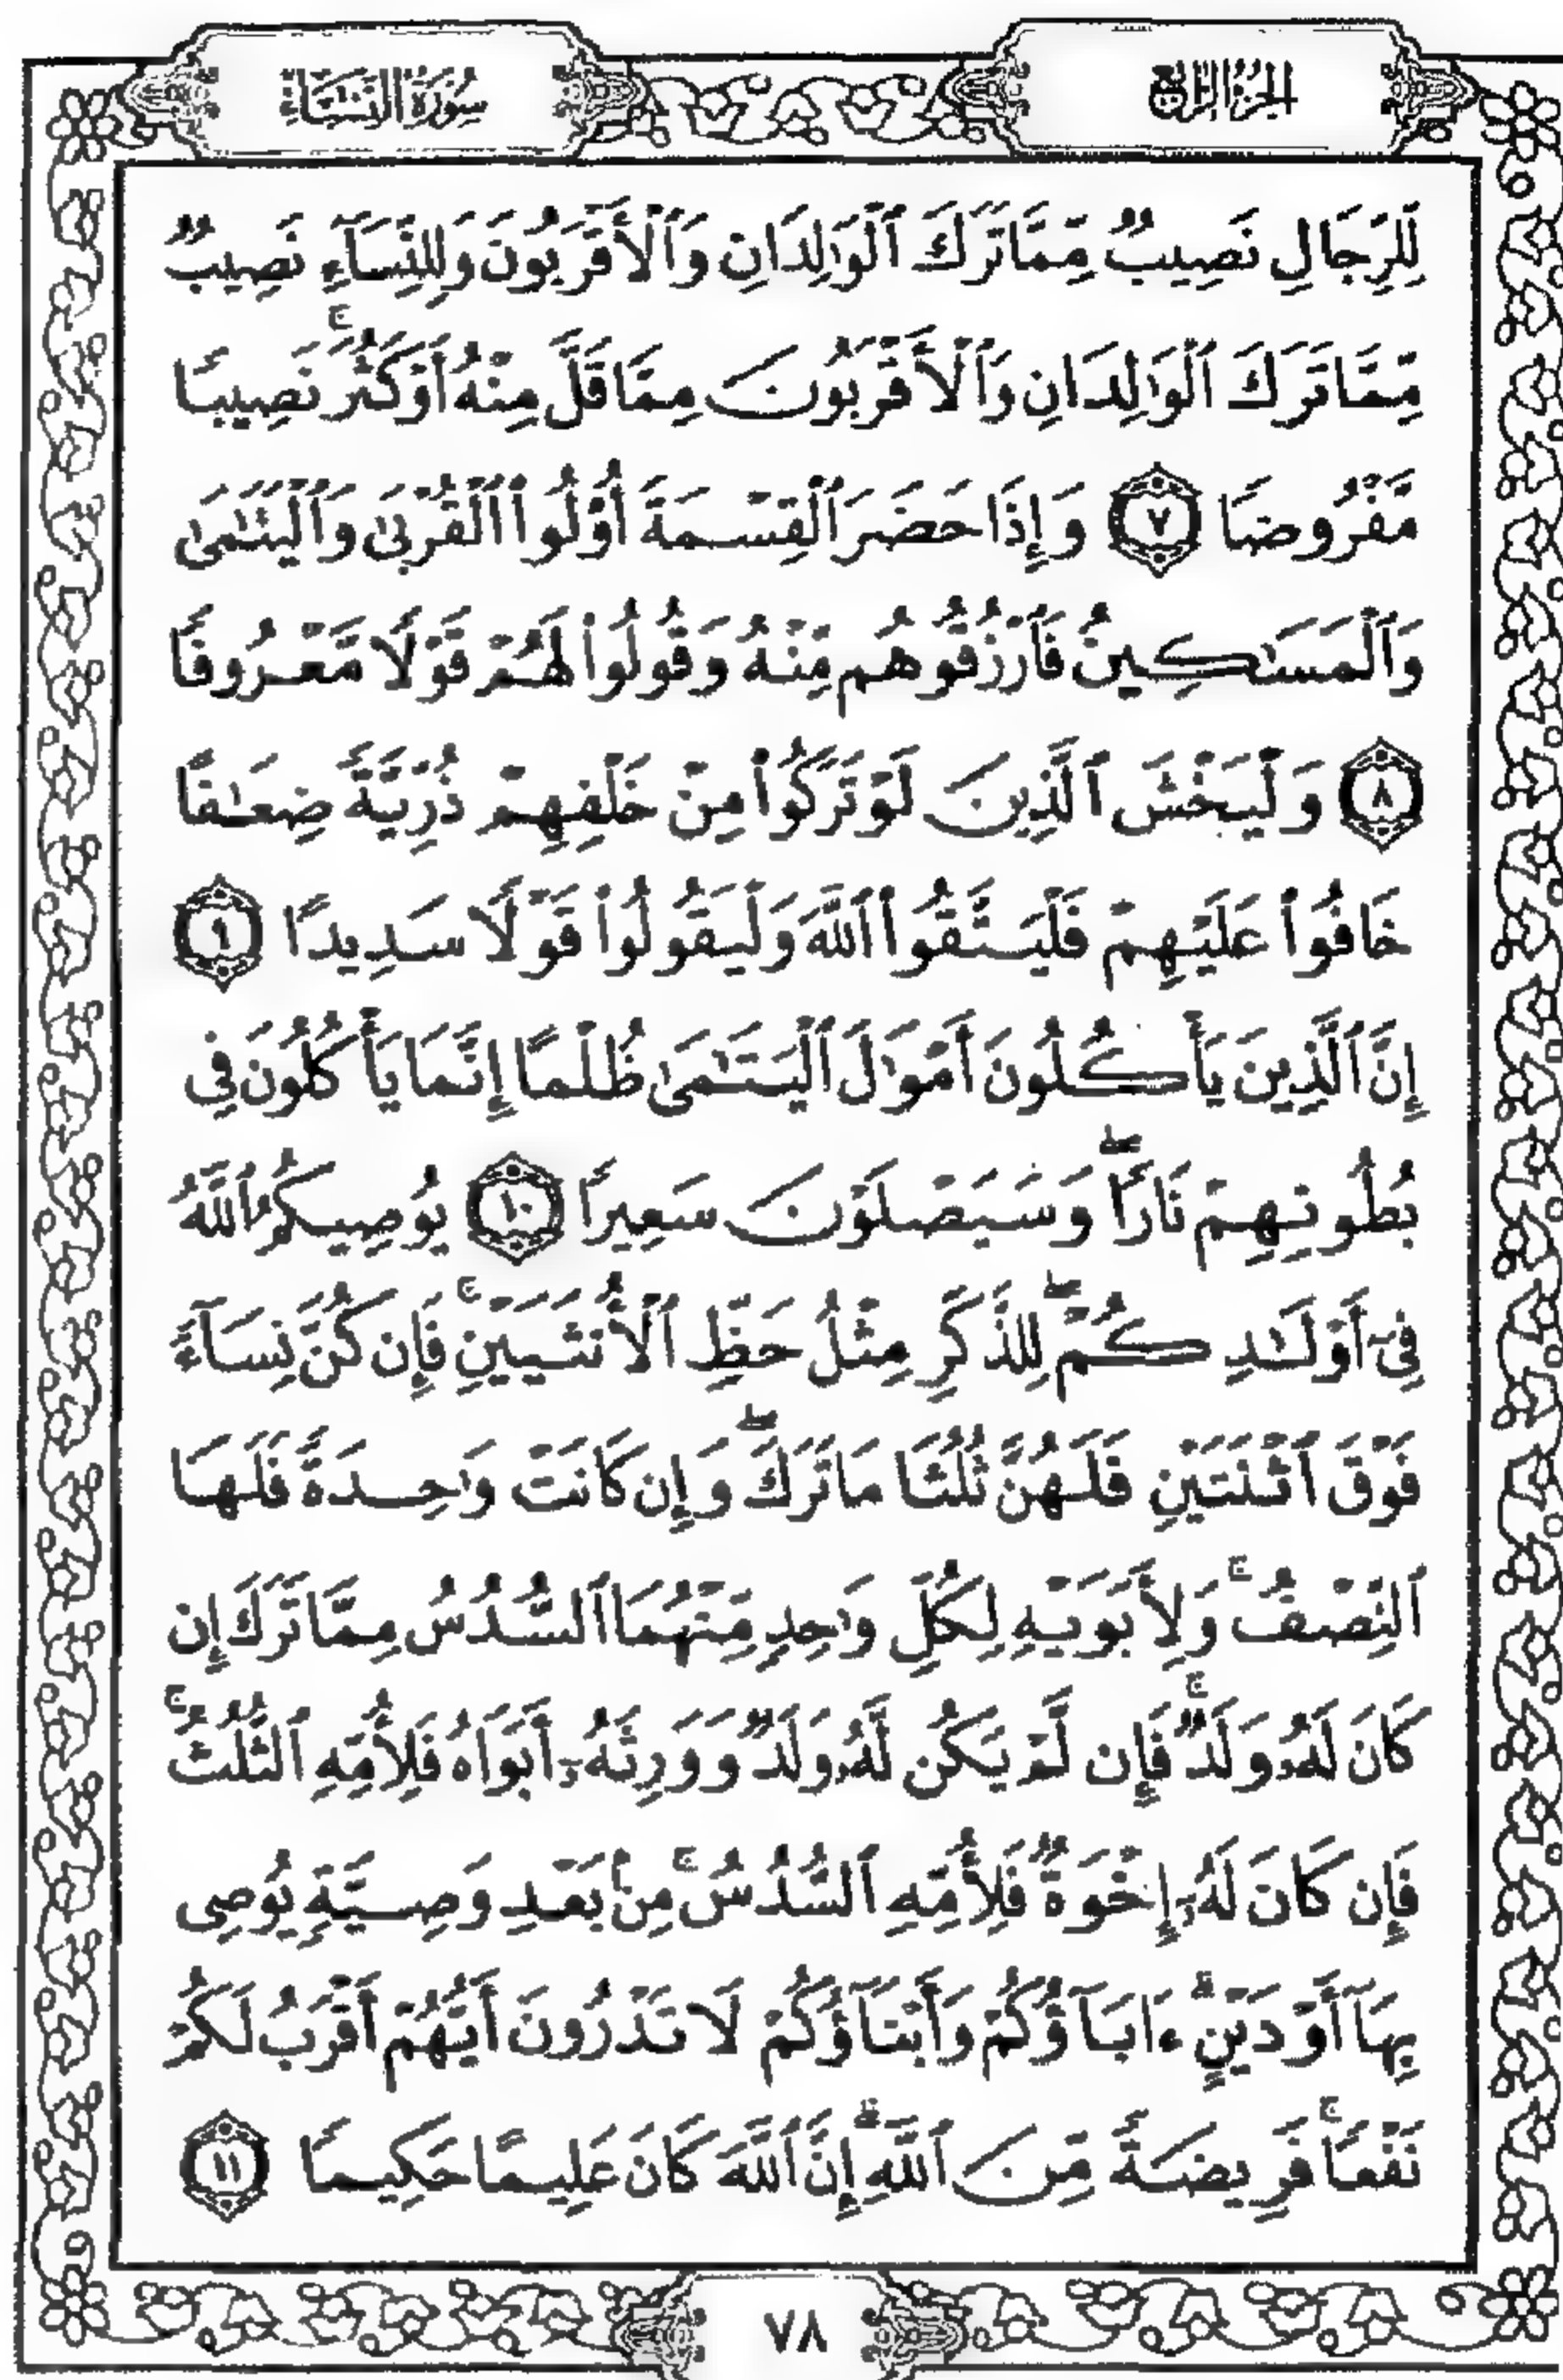 الجزء الرابع
سورة النساء
لِّلرِّجَالِ نَصِيبٌ مِّمَّا تَرَكَ ٱلْوَٰلِدَانِ وَٱلْأَقْرَبُونَ وَلِلنِّسَآءِ نَصِيبٌ
مِّمَّا تَرَكَ ٱلْوَٰلِدَانِ وَٱلْأَقْرَبُونَ مِمَّا قَلَّ مِنْهُ أَوْ كَثُرَ ۚ نَصِيبًا
مَّفْرُوضًا ٧ وَإِذَا حَضَرَ ٱلْقِسْمَةَ أُو۟لُوا۟ ٱلْقُرْبَىٰ وَٱلْيَتَٰمَىٰ
وَٱلْمَسَٰكِينُ فَٱرْزُقُوهُم مِّنْهُ وَقُولُوا۟ لَهُمْ قَوْلًا مَّعْرُوفًا
٨ وَلْيَخْشَ ٱلَّذِينَ لَوْ تَرَكُوا۟ مِنْ خَلْفِهِمْ ذُرِّيَّةً ضِعَٰفًا
خَافُوا۟ عَلَيْهِمْ فَلْيَتَّقُوا۟ ٱللَّهَ وَلْيَقُولُوا۟ قَوْلًا سَدِيدًا ٩
إِنَّ ٱلَّذِينَ يَأْكُلُونَ أَمْوَٰلَ ٱلْيَتَٰمَىٰ ظُلْمًا إِنَّمَا يَأْكُلُونَ فِى
بُطُونِهِمْ نَارًا ۖ وَسَيَصْلَوْنَ سَعِيرًا ١٠ يُوصِيكُمُ ٱللَّهُ
فِىٓ أَوْلَٰدِكُمْ ۖ لِلذَّكَرِ مِثْلُ حَظِّ ٱلْأُنثَيَيْنِ ۚ فَإِن كُنَّ نِسَآءً
فَوْقَ ٱثْنَتَيْنِ فَلَهُنَّ ثُلُثَا مَا تَرَكَ ۖ وَإِن كَانَتْ وَٰحِدَةً فَلَهَا
ٱلنِّصْفُ ۚ وَلِأَبَوَيْهِ لِكُلِّ وَٰحِدٍ مِّنْهُمَا ٱلسُّدُسُ مِمَّا تَرَكَ إِن
كَانَ لَهُۥ وَلَدٌ ۚ فَإِن لَّمْ يَكُن لَّهُۥ وَلَدٌ وَوَرِثَهُۥٓ أَبَوَاهُ فَلِأُمِّهِ ٱلثُّلُثُ ۚ
فَإِن كَانَ لَهُۥٓ إِخْوَةٌ فَلِأُمِّهِ ٱلسُّدُسُ ۚ مِنۢ بَعْدِ وَصِيَّةٍ يُوصِى
بِهَآ أَوْ دَيْنٍ ۗ ءَابَآؤُكُمْ وَأَبْنَآؤُكُمْ لَا تَدْرُونَ أَيُّهُمْ أَقْرَبُ لَكُمْ
نَفْعًا ۚ فَرِيضَةً مِّنَ ٱللَّهِ ۗ إِنَّ ٱللَّهَ كَانَ عَلِيمًا حَكِيمًا ١١
٧٨